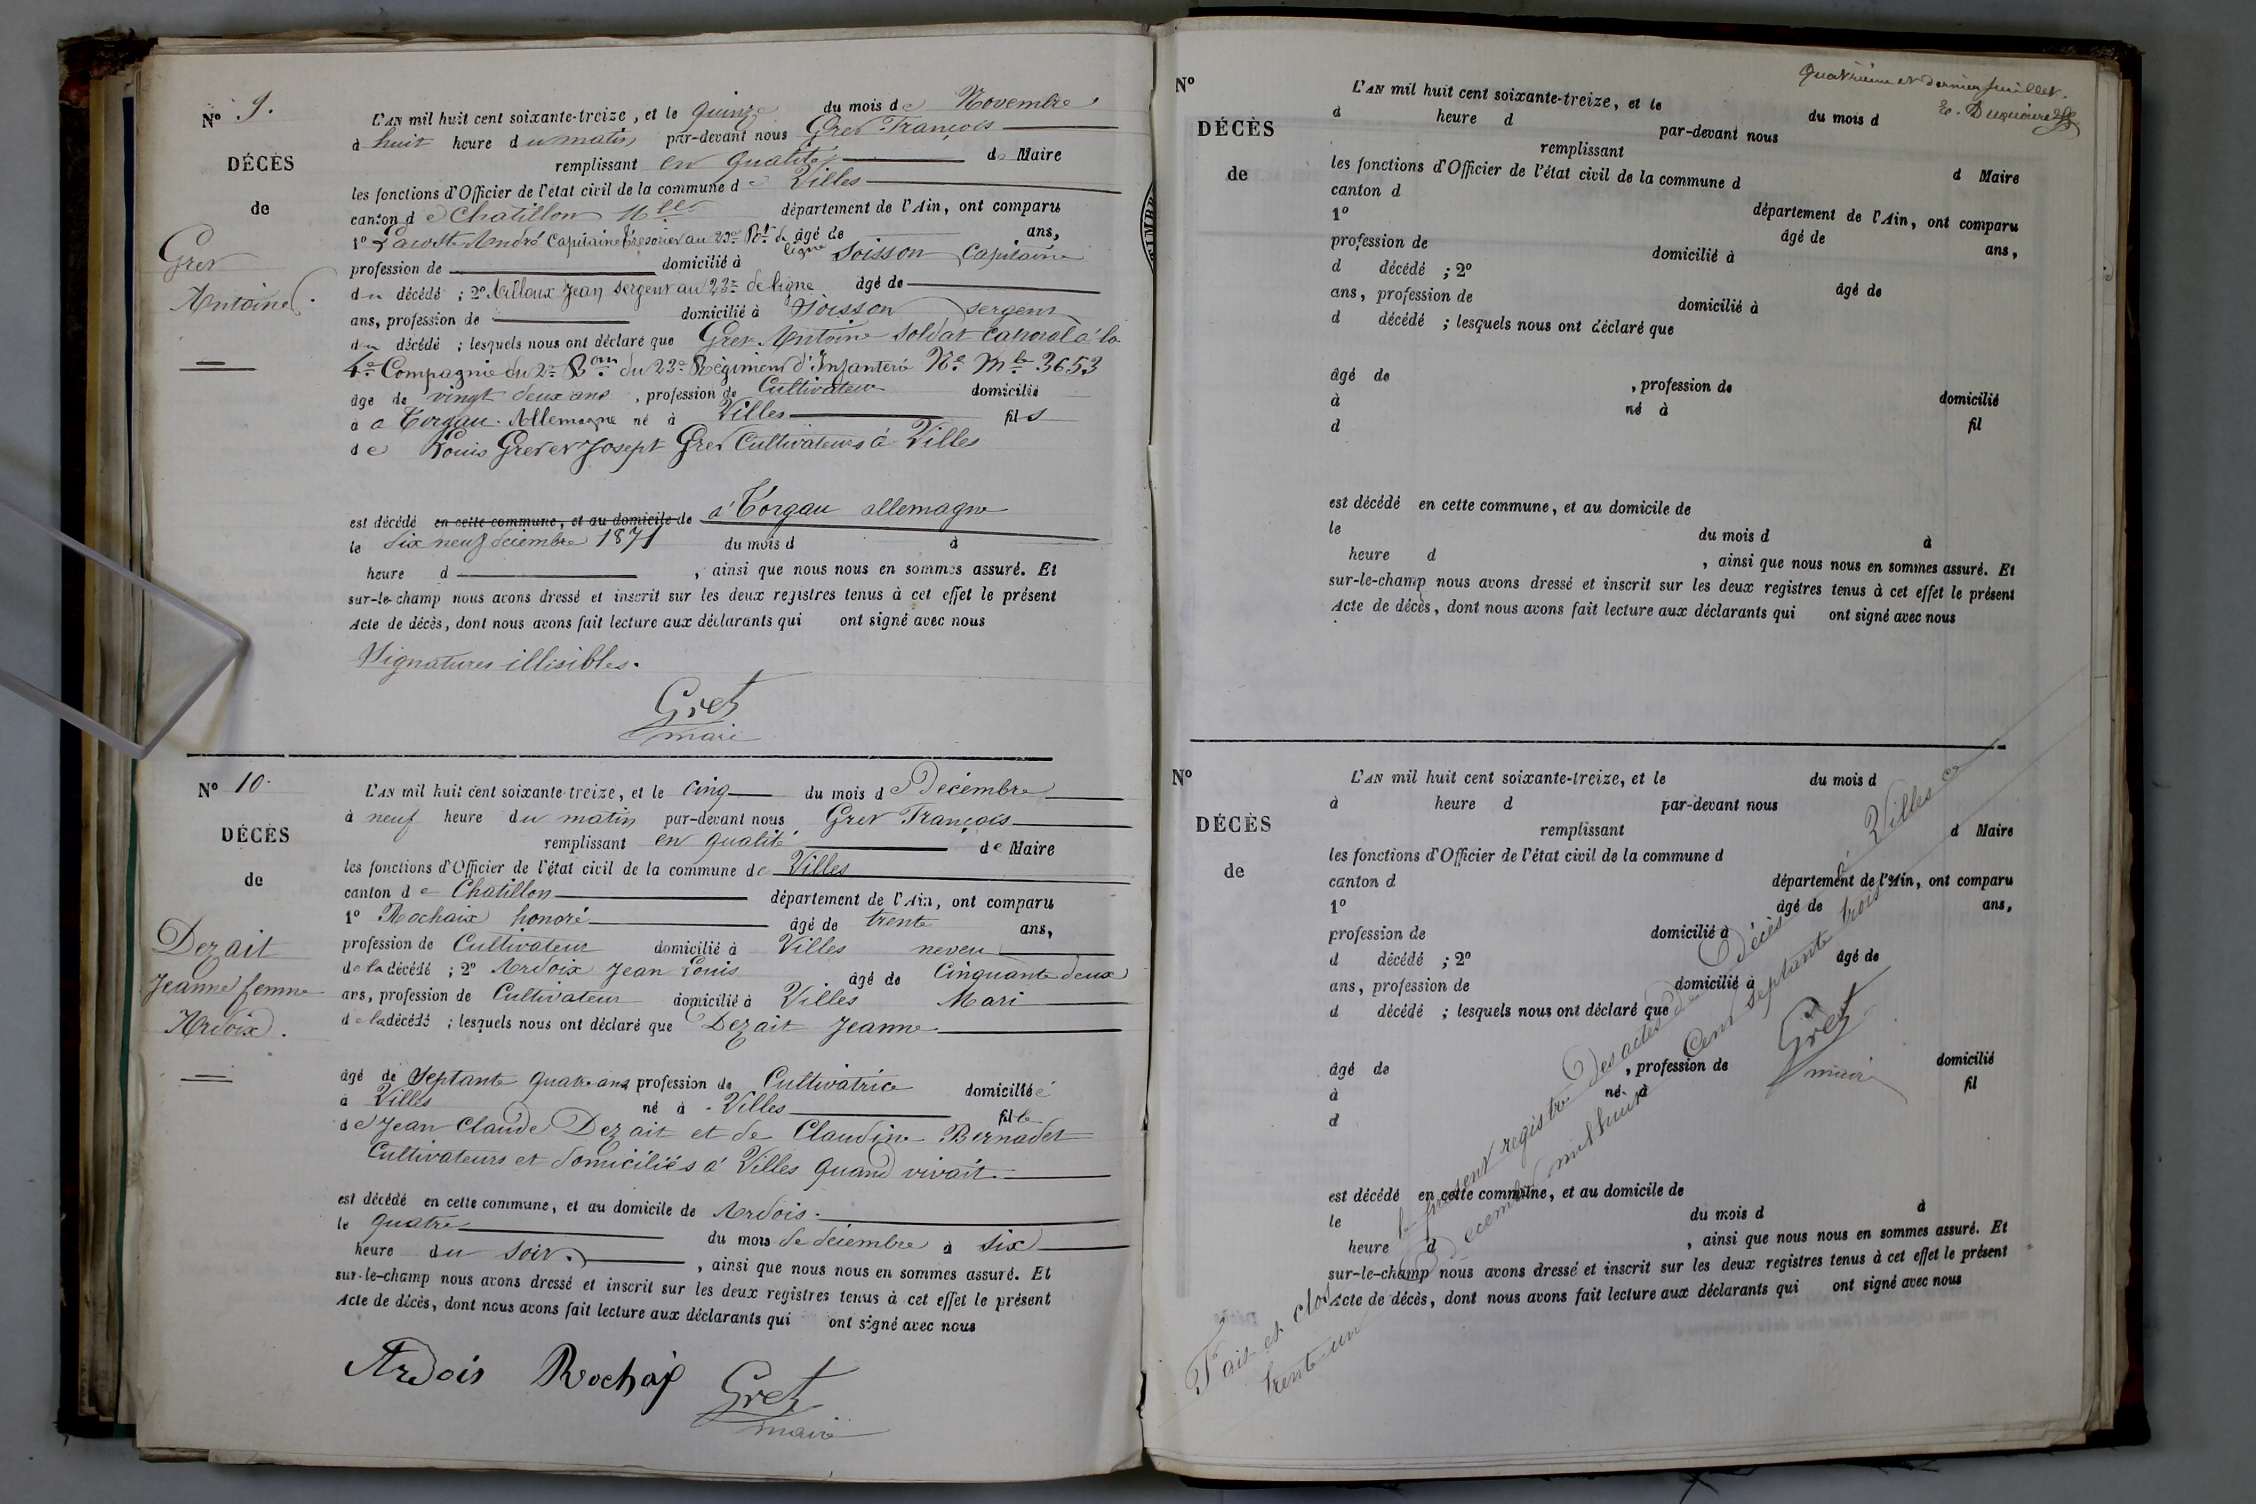 N° 9.
DÉCÈS
de
Gret
Antoine.
L'AN mil huit cent soixante-treize, et le quinze du mois de Novembre
à huit heure du matin par-devant nous Gret François
remplissant en qualité de Maire
les fonctions d'Officier de l'état civil de la commune de Villes
canton de Chatillon département de l'Ain, ont comparu
1° André Capitaine trésorier au 23e Rt de ligne âgé de ans,
profession de domicilié à Soisson Capitaine
du décédé ; 2° Jean Sergent au 23e de ligne âgé de
ans, profession de domicilié à Soisson Sergent
du décédé ; lesquels nous ont déclaré que Gret Antoine Soldat caporal à la
4e Compagnie du 2e Bon du 23e Régiment d'Infanterie No Mle 3653
âgé de vingt deux ans, profession de Cultivateur domicilié
à a Torgau. Allemagne né à Villes fils
de Louis Gret et Josept Gret Cultivateurs à Villes
est décédé en cette commune, et au domicile de à Torgau allemagne
le dix neuf décembre 1871 du mois d à
heure d , ainsi que nous nous en sommes assuré. Et
sur-le-champ nous avons dressé et inscrit sur les deux registres tenus à cet effet le présent
Acte de décès, dont nous avons fait lecture aux déclarants qui ont signé avec nous
Signatures illisibles.
Gret
maire
N° 10.
DÉCÈS
de
Dezait
Jeanne femme
Ardoix.
L'AN mil huit cent soixante-treize, et le cinq du mois de Décembre
à neuf heure du matin par-devant nous Gret François
remplissant en qualité de Maire
les fonctions d'Officier de l'état civil de la commune de Villes
canton de Chatillon département de l'Ain, ont comparu
1° Rochaix honoré âgé de trente ans,
profession de Cultivateur domicilié à Villes neveu
de la décédé ; 2° Ardoix Jean Louis âgé de Cinquante deux
ans, profession de Cultivateur domicilié à Villes Mari
de la décédé ; lesquels nous ont déclaré que Dezait Jeanne
âgé de Septante quatre ans profession de Cultivatrice domiciliée
à Villes né à Villes fille
de Jean Claude Dezait et de Claudine Bernadet
Cultivateurs et domiciliés à Villes quand vivait
est décédé en cette commune, et au domicile de Ardois.
le quatre du mois de décembre à six
heure du soir. , ainsi que nous nous en sommes assuré. Et
sur-le-champ nous avons dressé et inscrit sur les deux registres tenus à cet effet le présent
Acte de décès, dont nous avons fait lecture aux déclarants qui ont signé avec nous
Ardois Rochaix Gret
maire
Quatrième et dernier feuillet.
N°
DÉCÈS
de
L'AN mil huit cent soixante-treize, et le du mois d
à heure d par-devant nous
remplissant d Maire
les fonctions d'Officier de l'état civil de la commune d
canton d département de l'Ain, ont comparu
1° âgé de ans,
profession de domicilié à
d décédé ; 2° âgé de
ans, profession de domicilié à
d décédé ; lesquels nous ont déclaré que
âgé de , profession de domicilié
à né à fil
d
est décédé en cette commune, et au domicile de
le du mois d à
heure d , ainsi que nous nous en sommes assuré. Et
sur-le-champ nous avons dressé et inscrit sur les deux registres tenus à cet effet le présent
Acte de décès, dont nous avons fait lecture aux déclarants qui ont signé avec nous
N°
DÉCÈS
de
L'AN mil huit cent soixante-treize, et le du mois d
à heure d par-devant nous
remplissant d Maire
les fonctions d'Officier de l'état civil de la commune d
canton d département de l'Ain, ont comparu
1° âgé de ans,
profession de domicilié à
d décédé ; 2° âgé de
ans, profession de domicilié à
d décédé ; lesquels nous ont déclaré que
âgé de , profession de domicilié
à né à fil
d
est décédé en cette commune, et au domicile de
le du mois d à
heure d , ainsi que nous nous en sommes assuré. Et
sur-le-champ nous avons dressé et inscrit sur les deux registres tenus à cet effet le présent
Acte de décès, dont nous avons fait lecture aux déclarants qui ont signé avec nous
Fait et clos le présent registre des actes de Décès à Villes ce
trente un Décembre mil huit Cent septante trois
Gret
maire